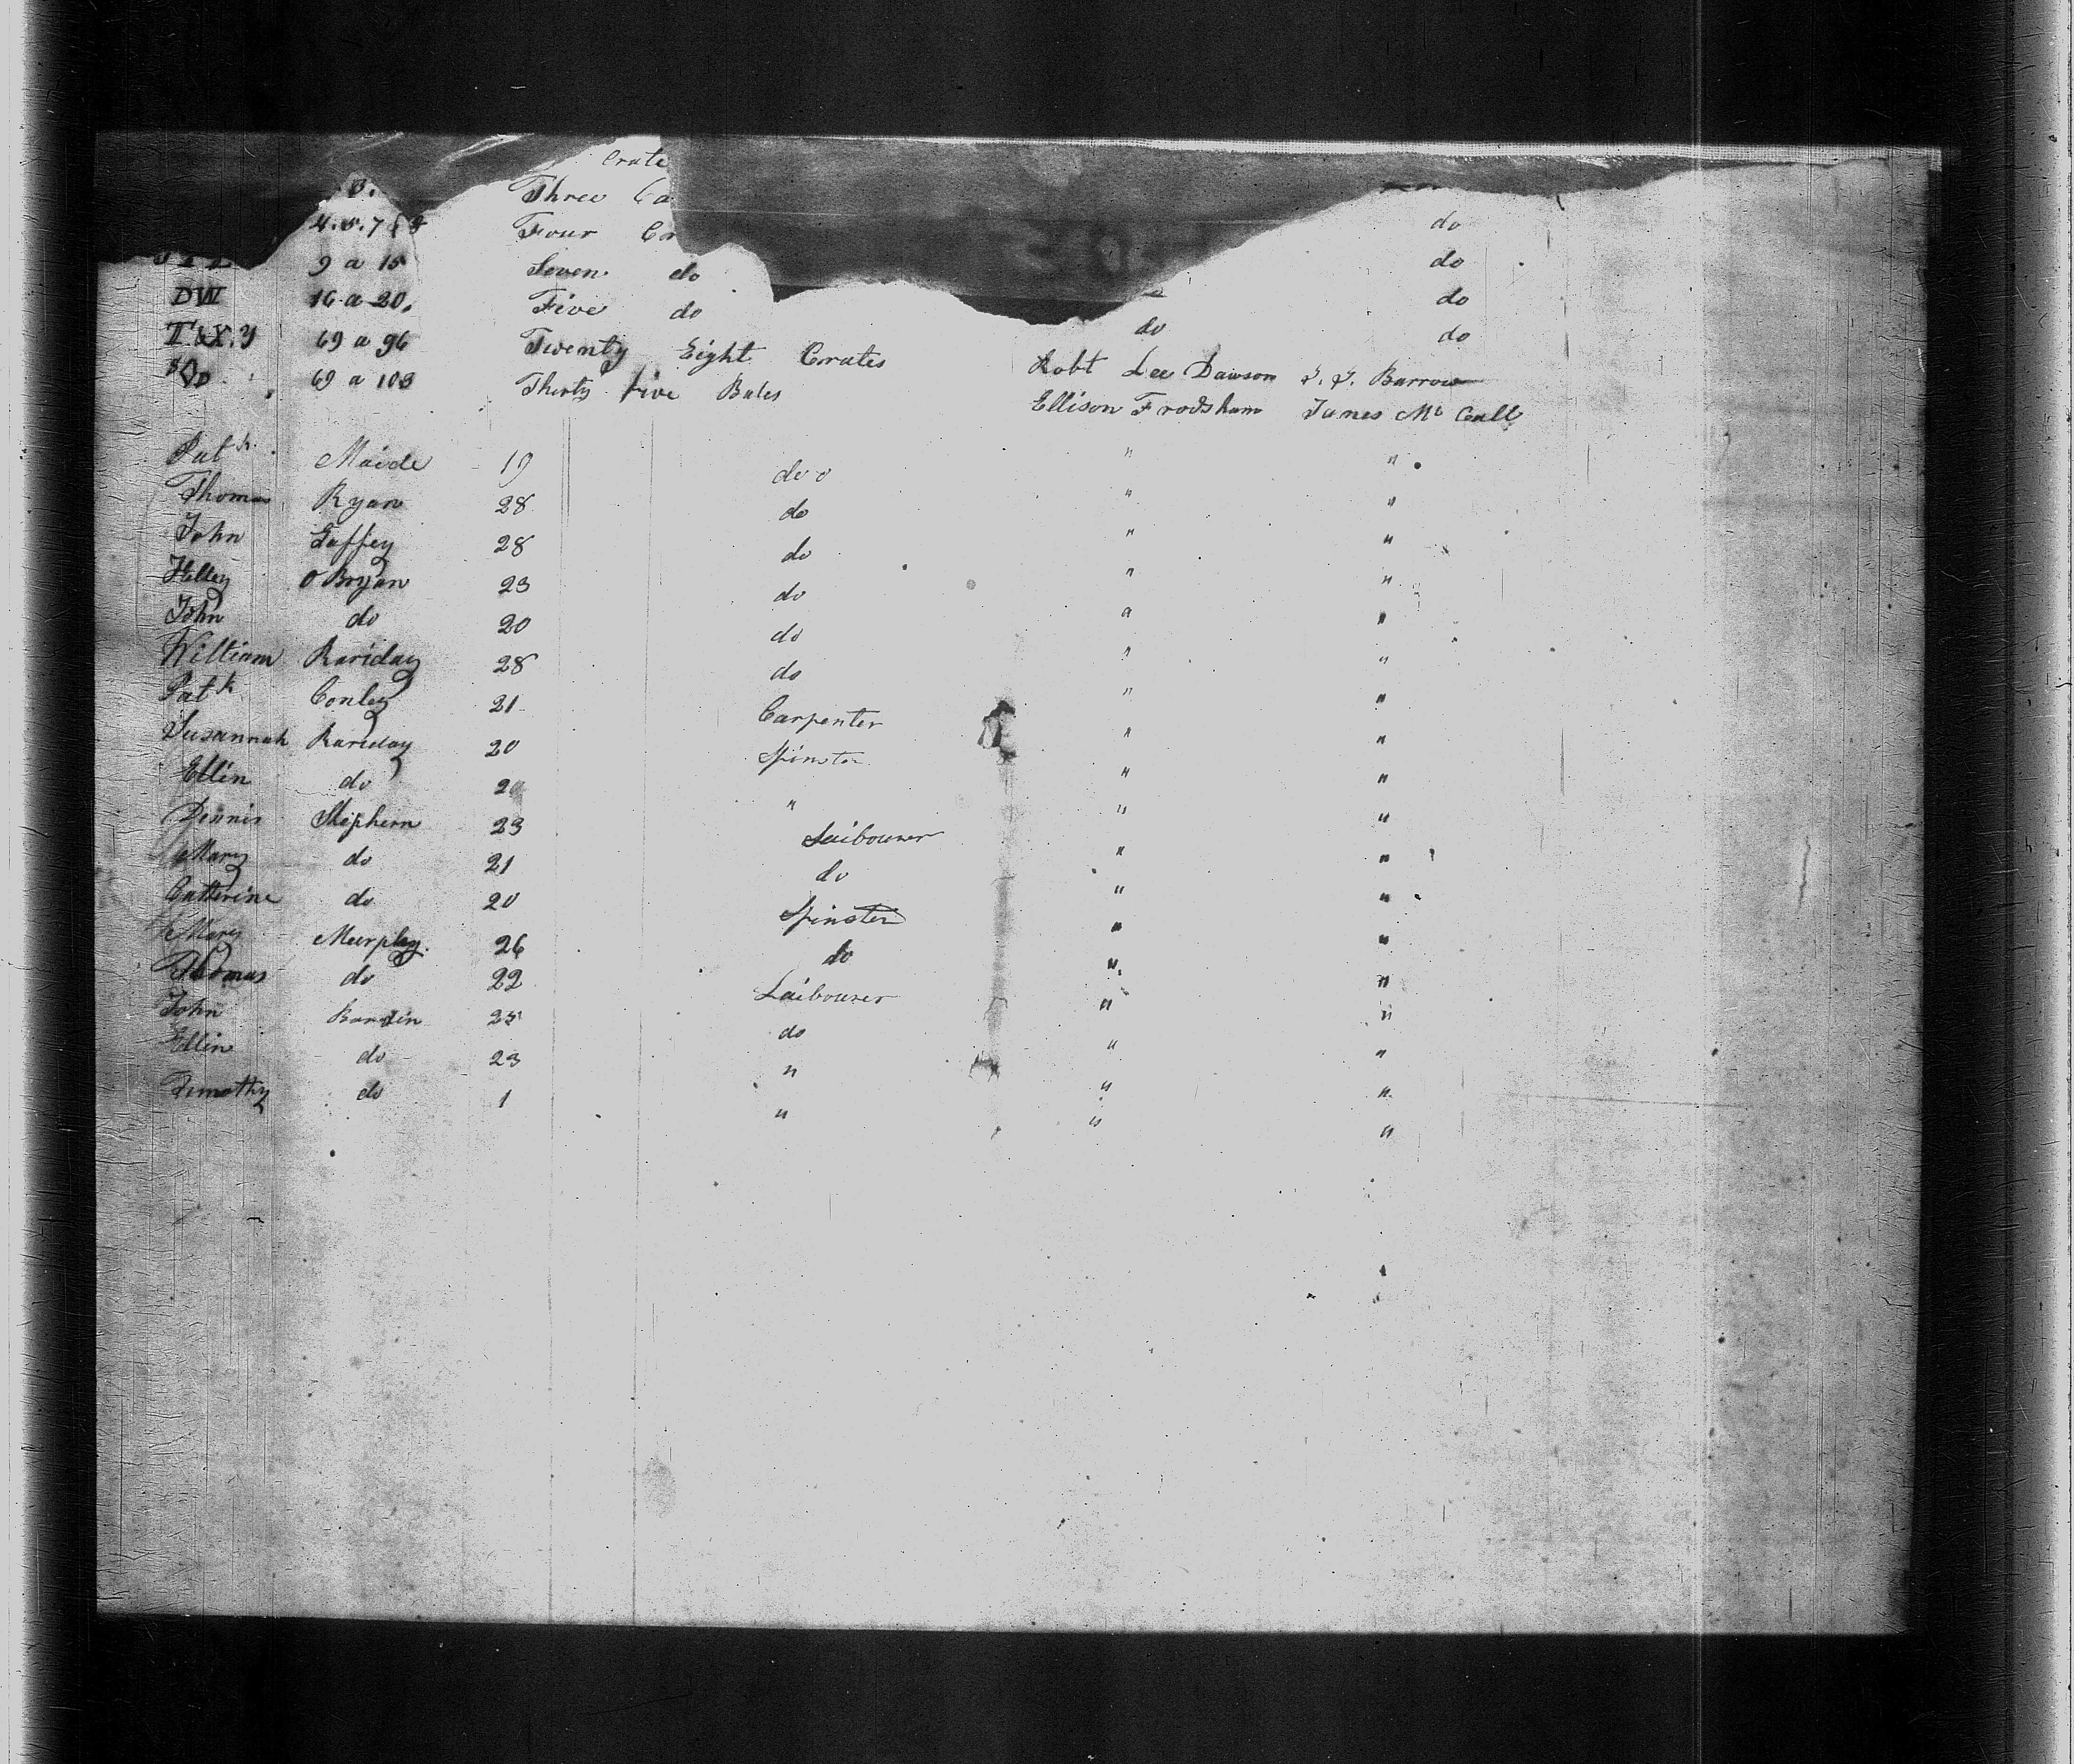 Crate
3. Three Ca
4.5.7 & 8 Four Cr do
9 a 15 Seven do do
DW 16 a 20. Five do do
T.&X.Y 69 a 96 Twenty Eight Crates do do
69 a 103 Thirty Five Bales Robt Lee Dawson J. J. Barrow
Ellison Frodsham James Mc Call
Patk. Maide 19 do " "
Thomas Ryan 28 do " "
John Gaffey 28 do " "
O Bryan 23 do " "
John do 20 do " "
William Rariday 28 do " "
Patk Conley 21 Carpenter " "
Susannah Rariday 20 Spinster " "
Ellin do 20 " " "
Dennis Stephern 23 Laibourer " "
Mary do 21 do " "
Catterine do 20 Spinster " "
Mary Murphy. 26 do " "
Thomas do 22 Laibourer " "
John 25 do " "
Ellin do 23 " " "
Timothy do 1 " " "